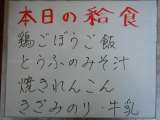 本日の給食
鶏ごぼうご飯
とうふのみそ汁
焼きれんこん
きざみのり・牛乳